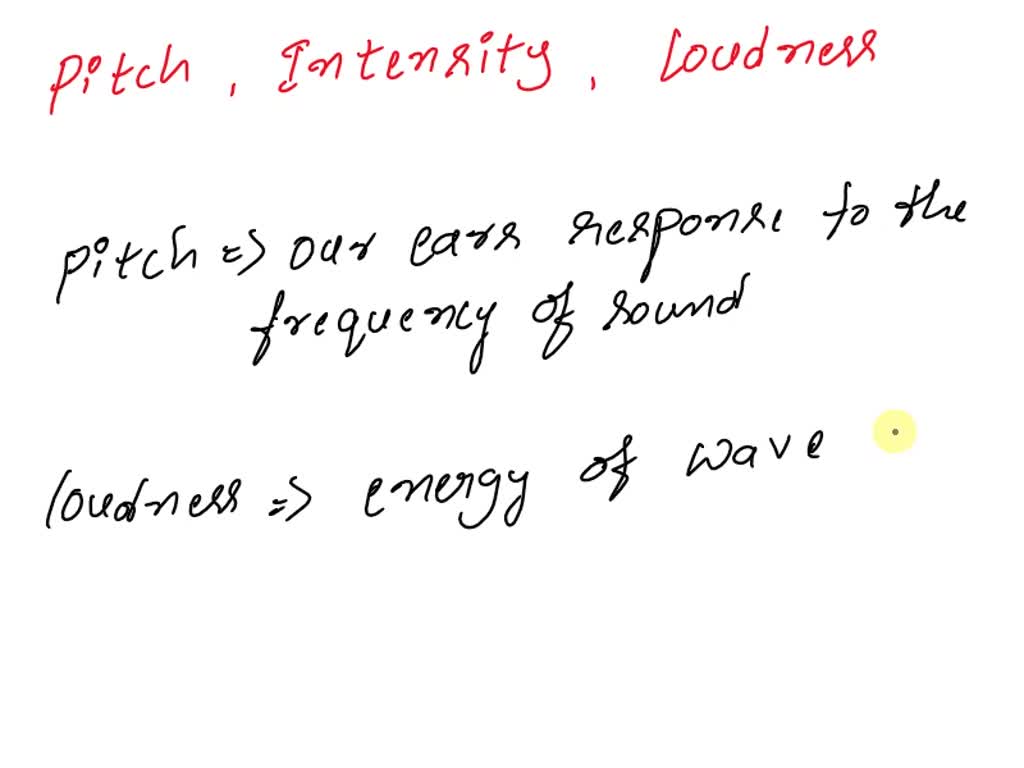 Pitch, Intensity, Loudness
Pitch => our ears response to the
frequency of sound
loudness => energy of wave